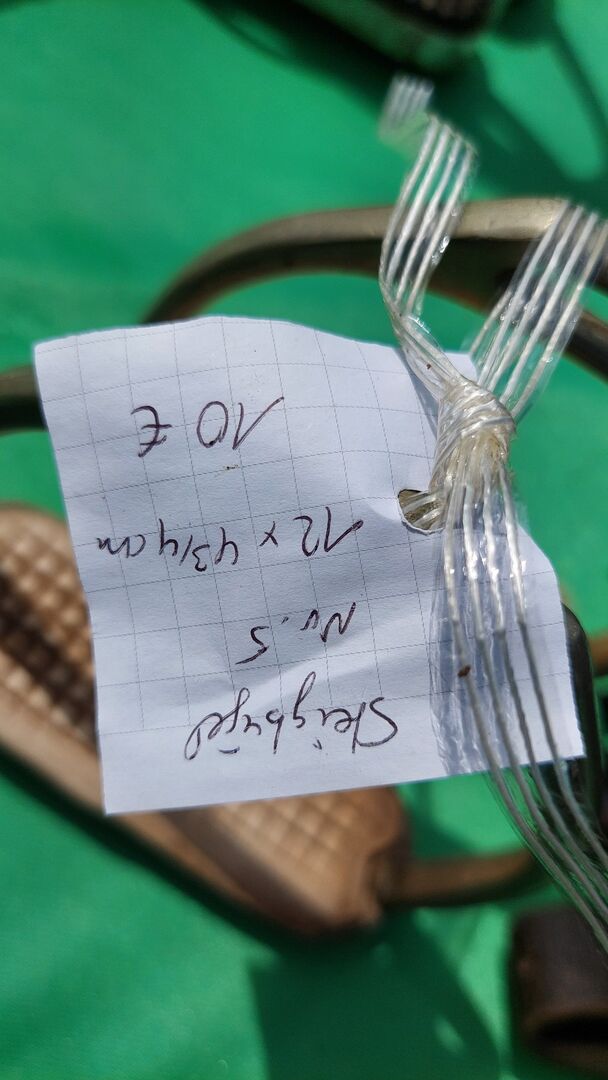 Steigbügel
Nr. 5
12 x 4 3/4 cm
10 €